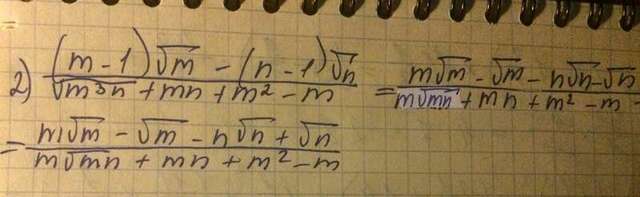 2) ((m - 1)√m - (n - 1)√n)/(√(m³n) + mn + m² - m) = (m√m - √m - n√n - √n)/(m√(mn) + mn + m² - m)
= (m√m - √m - n√n + √n)/(m√(mn) + mn + m² - m)